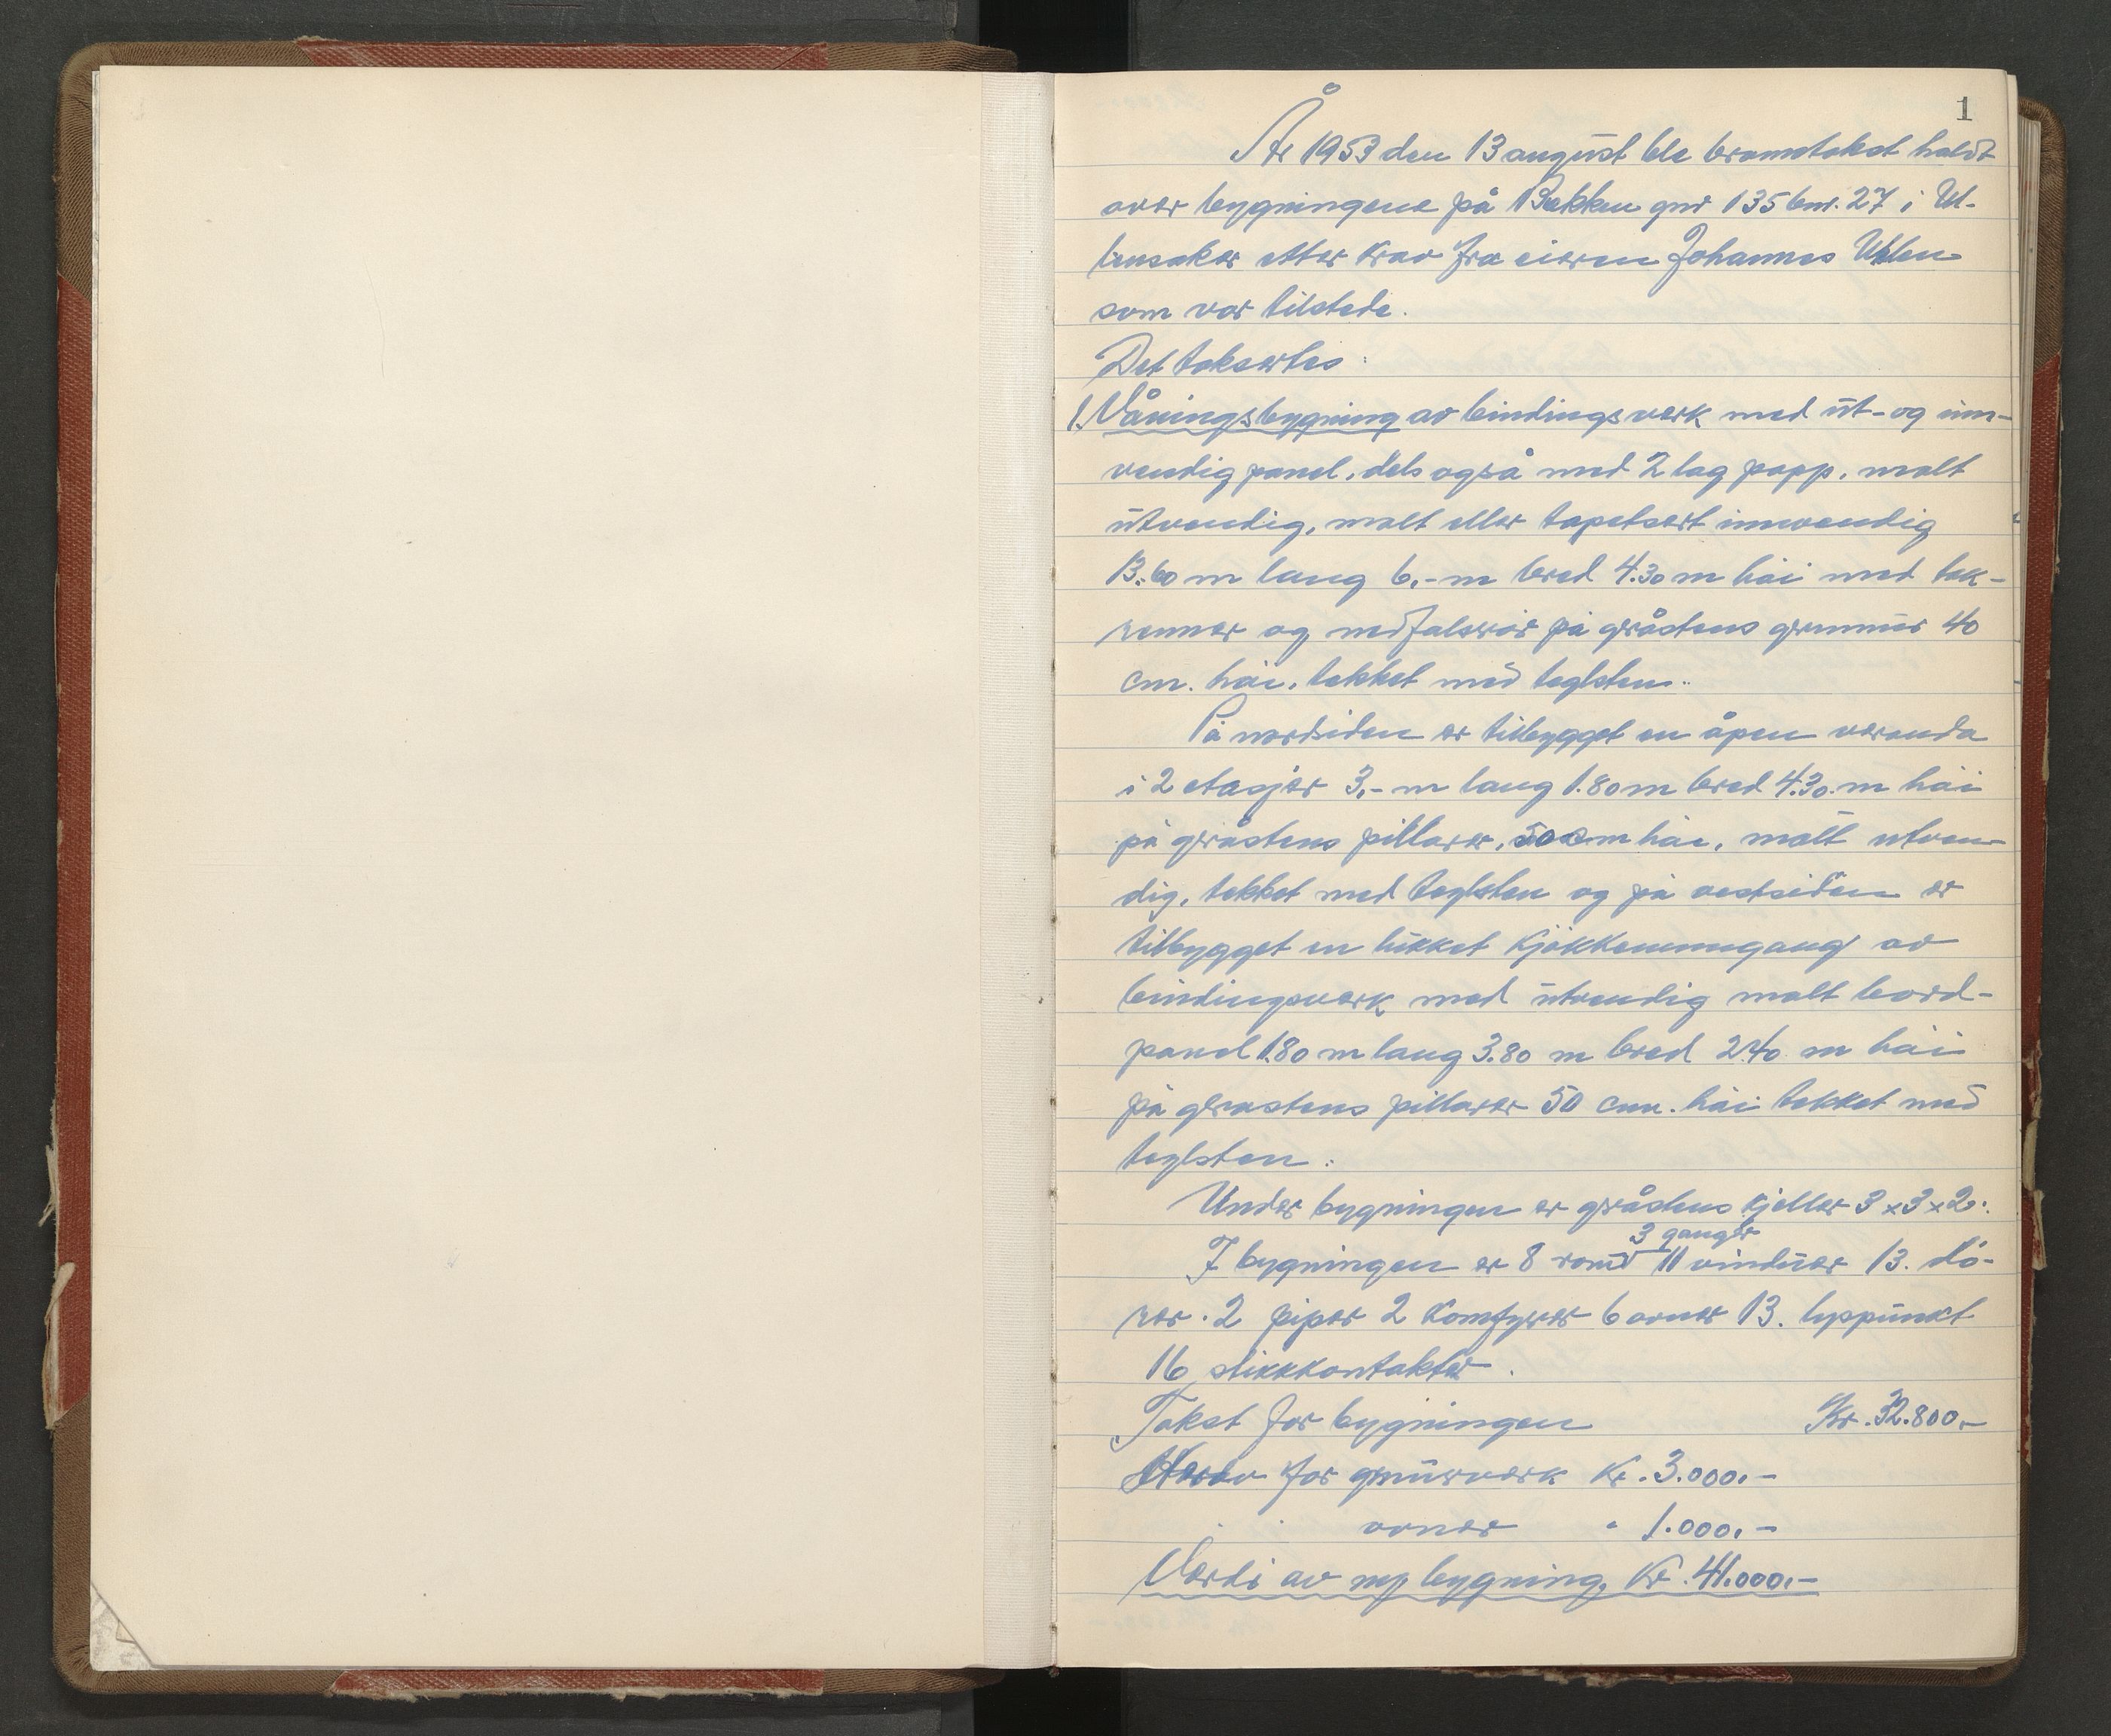 1
År 1953 den 13 august ble branntakst holdt
over bygningene på Bekken gnr 135 bnr. 27 i Ul-
lensaker etter krav fra eieren Johannes Uhlen
som var tilstede.
Det taksertes:
1. Våningsbygning av bindingsverk med ut- og inn-
vendig panel, dels også med 2 lag papp, malt
utvendig, malt eller tapetsert innvendig
13.60 m lang 6,- m bred 4.30 m høi med tak-
renner og nedfalsrør på gråstens grunnur 40
cm. høi, tekket med teglsten.
På nordsiden er tilbygget en åpen veranda
i 2 etasjer 3,- m lang 1.80 m bred 4.30 m høi
på gråstens pillarer, 50 cm høi, malt utven-
dig, tekket med teglsten og på vestsiden er
tilbygget en lukket kjøkkenmngang av
bindingsverk med utvendig malt bord-
panel 1.80 m lang 3.80 m bred 2.40 m høi
på gråstens pillarer 50 cm. høi tekket med
teglsten.
Under bygningen er gråstens kjeller 3 x 3 x 2.
3 ganger
I bygningen er 8 rom 11 vinduer 13. dø-
rer. 2 piper 2 komfyrer 6 ovner 13. lyspunkt
16 stikkkontakter.
Takst for bygningen Kr. 32.800,-
Herav for grnurverk Kr. 3.000,-
" " ovner " 1.000,-
Verdi av ny bygning, Kr. 41.000,-